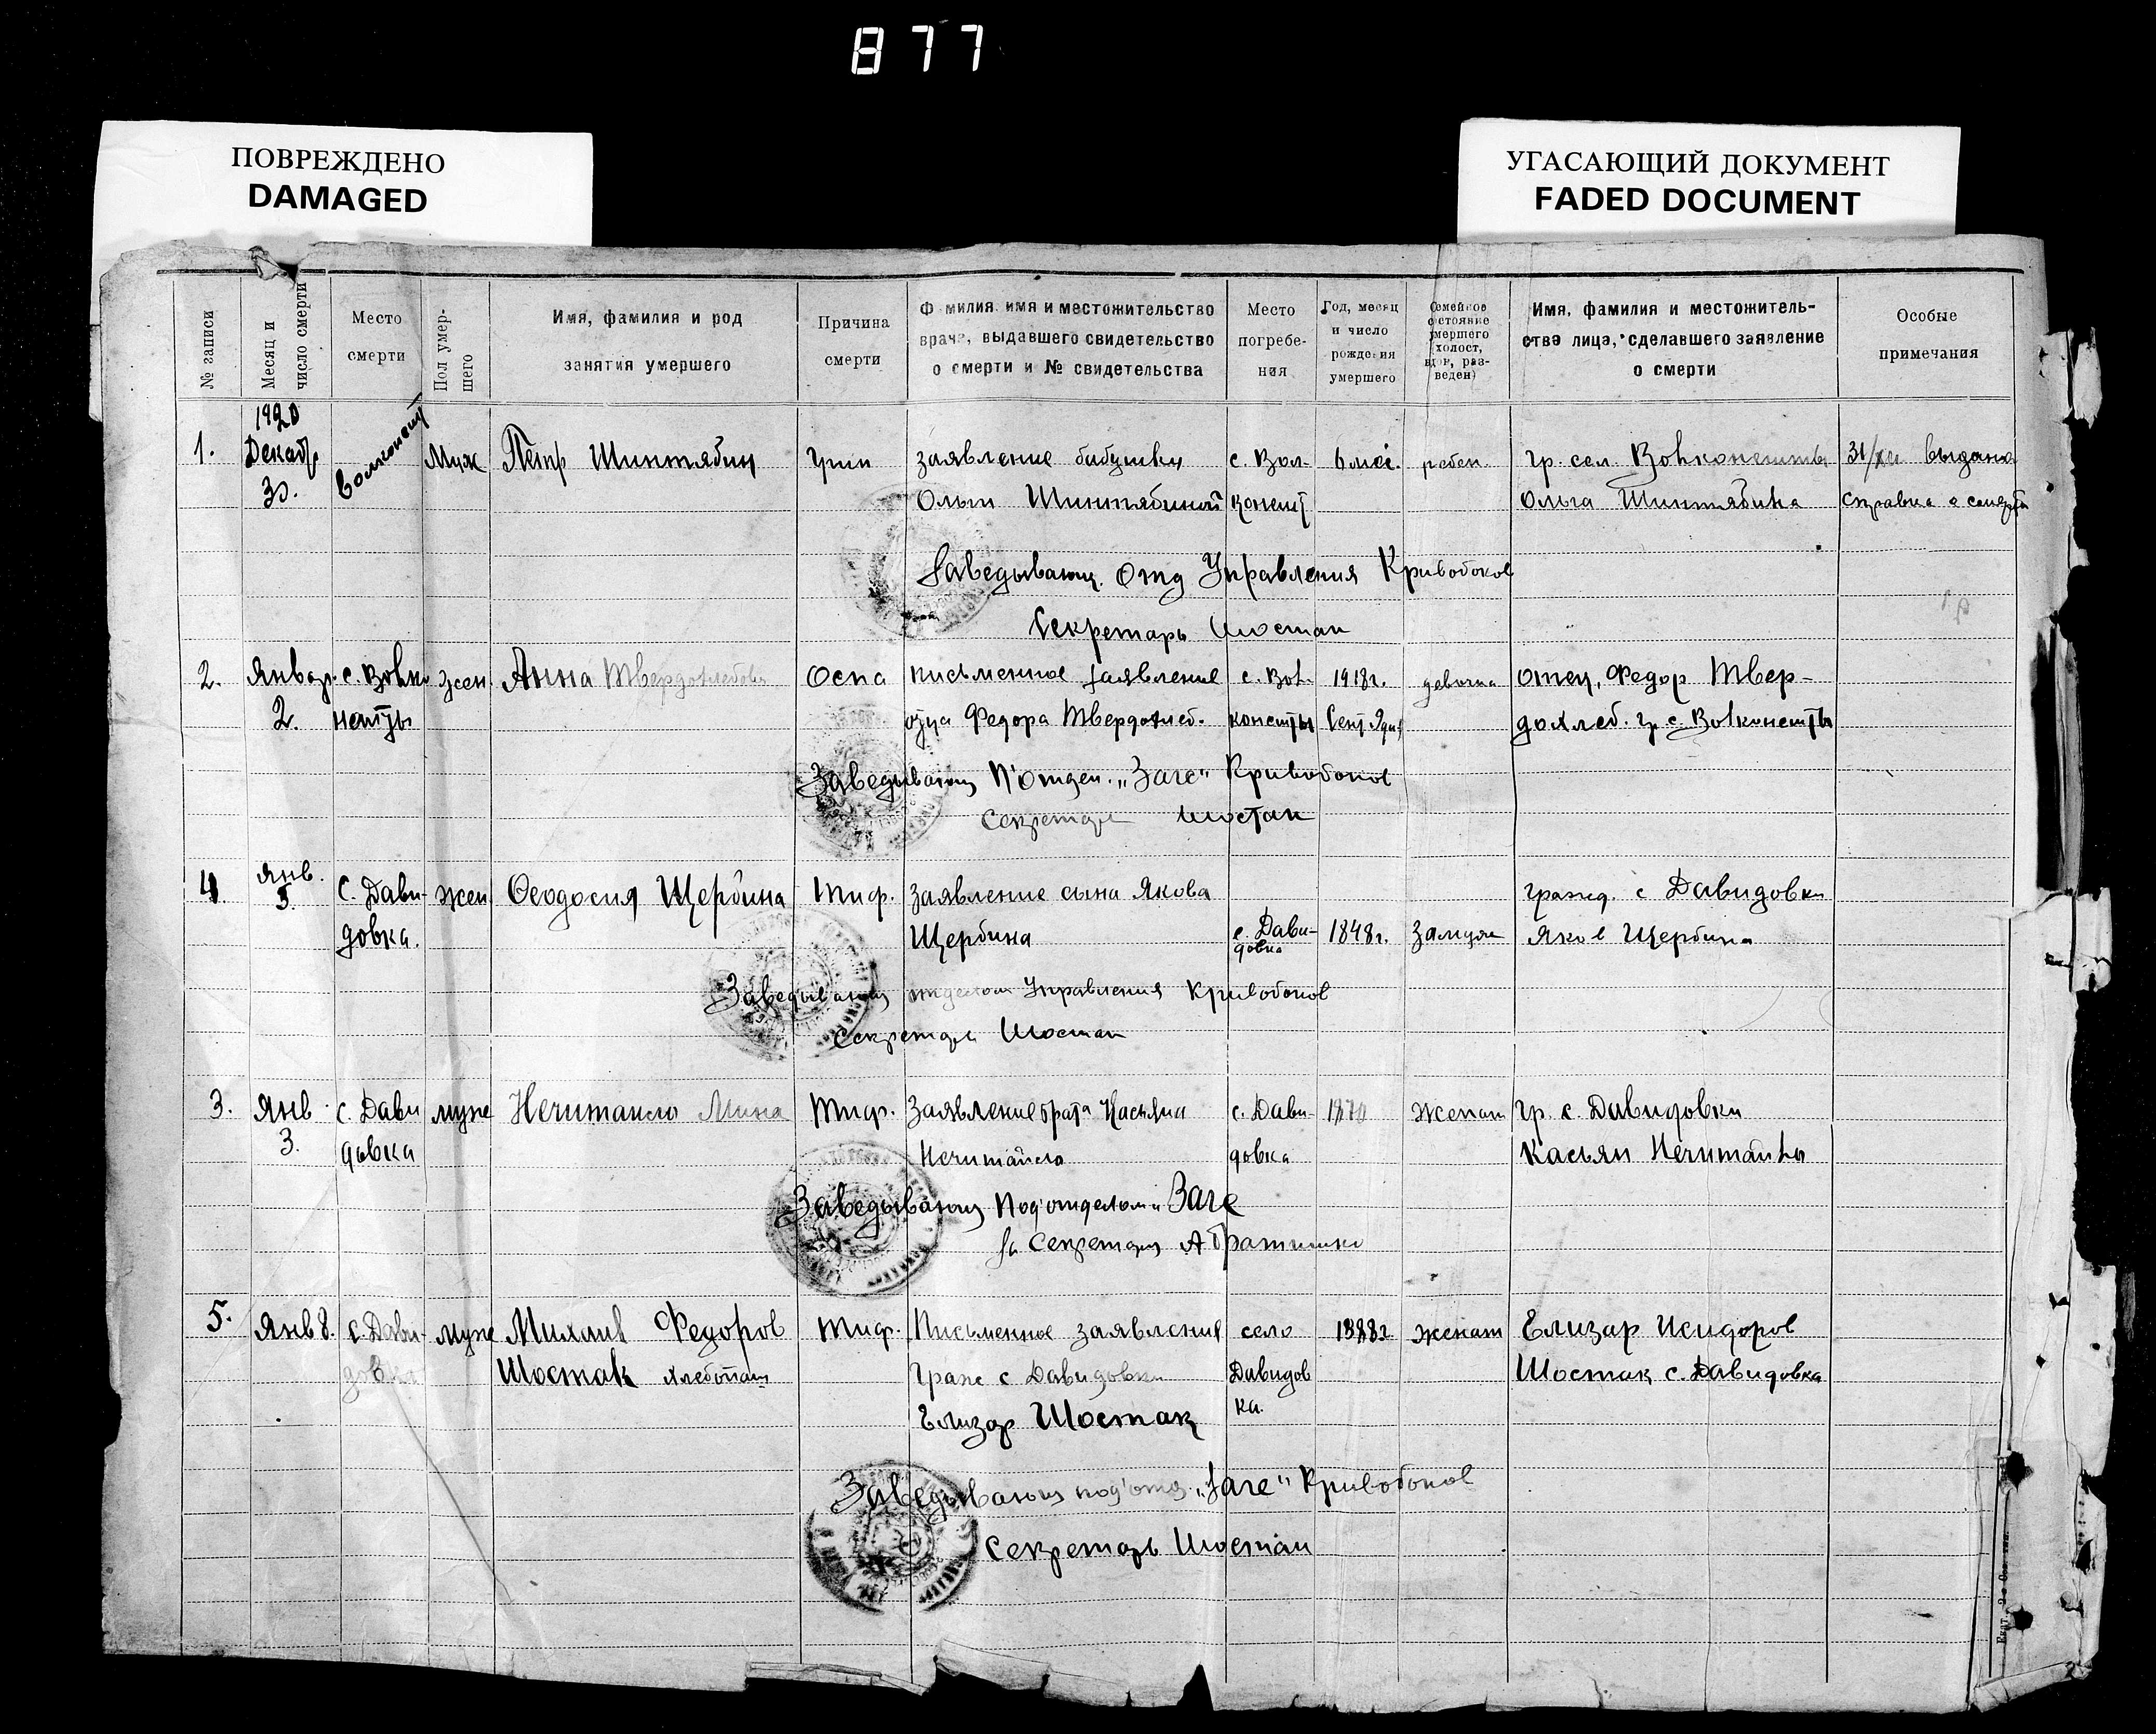 877
ПОВРЕЖДЕНО
DAMAGED
УГАСАЮЩИЙ ДОКУМЕНТ
FADED DOCUMENT
№ записи
Месяц и
число смерти
Место
смерти
Пол умер-
шего
Имя, фамилия и род
занятия умершего
Причина
смерти
Ф милия имя и местожительство
врача, выдавшего свидетельство
о смерти и № свидетельства
Место
погребе-
ния
Год, месяц
и число
рождения
умершего
Семейное
состояние
умершего
холост,
вдов, раз-
веден)
Имя, фамилия и местожитель-
ства лица, сделавшего заявление
о смерти
Особые
примечания
1.
1920
Декабр
30.
Волконешт
Муж
Петр Шинтябин
заявление бабушки
Ольги Шинтябиной
с. Вол-
конешт
6 мес.
ребен.
гр. сел. Волконешты
Ольга Шинтябина
31/XII выдана
справка о смерти
Заведывающ. Отд Управления Кривобоков
Секретарь Шостак
2.
Январ.
2.
с. Волко
нешты
жен.
Анна Твердохлебова
Оспа
письменное заявление
отца Федора Твердохлеб.
с. Вол.
конешты
1918г.
девочка
отец, Федор Твер-
дохлеб. гр. с. Волконешты
Заведывающ П'отдел. „Загс" Кривобоков
Секретарь Шостак
4
Янв.
5.
С. Дави-
довка.
жен.
Феодосия Щербина
Тиф.
Заявление сына Якова
Щербина
с. Дави-
довка
1848г.
Замуж
гражд. с Давидовки
Яков Щербина
Заведывающ отделом Управления Кривобоков
Секретарь Шостак
3.
Янв
3.
с. Дави
довка
муж
Нечитайло Мина
Тиф.
Заявление брата Касьяна
Нечитайло
с. Дави-
довка
1870
Женат
Гр. с. Давидовки
Касьян Нечитайло
Заведывающ Под'отделом „Загс
За Секретаря
5.
Янв 8.
с. Дави-
довка
муж
Михаил Федоров
Шостак хлебопаш
Тиф.
Письменное заявление
Граж с Давидовки
Елизар Шостак
село
Давидов
ка.
1888г
женат
Елизар Исидоров
Шостак с. Давидовка
Заведывающ под'отд. „Загс" Кривобоков
Секретарь Шостак